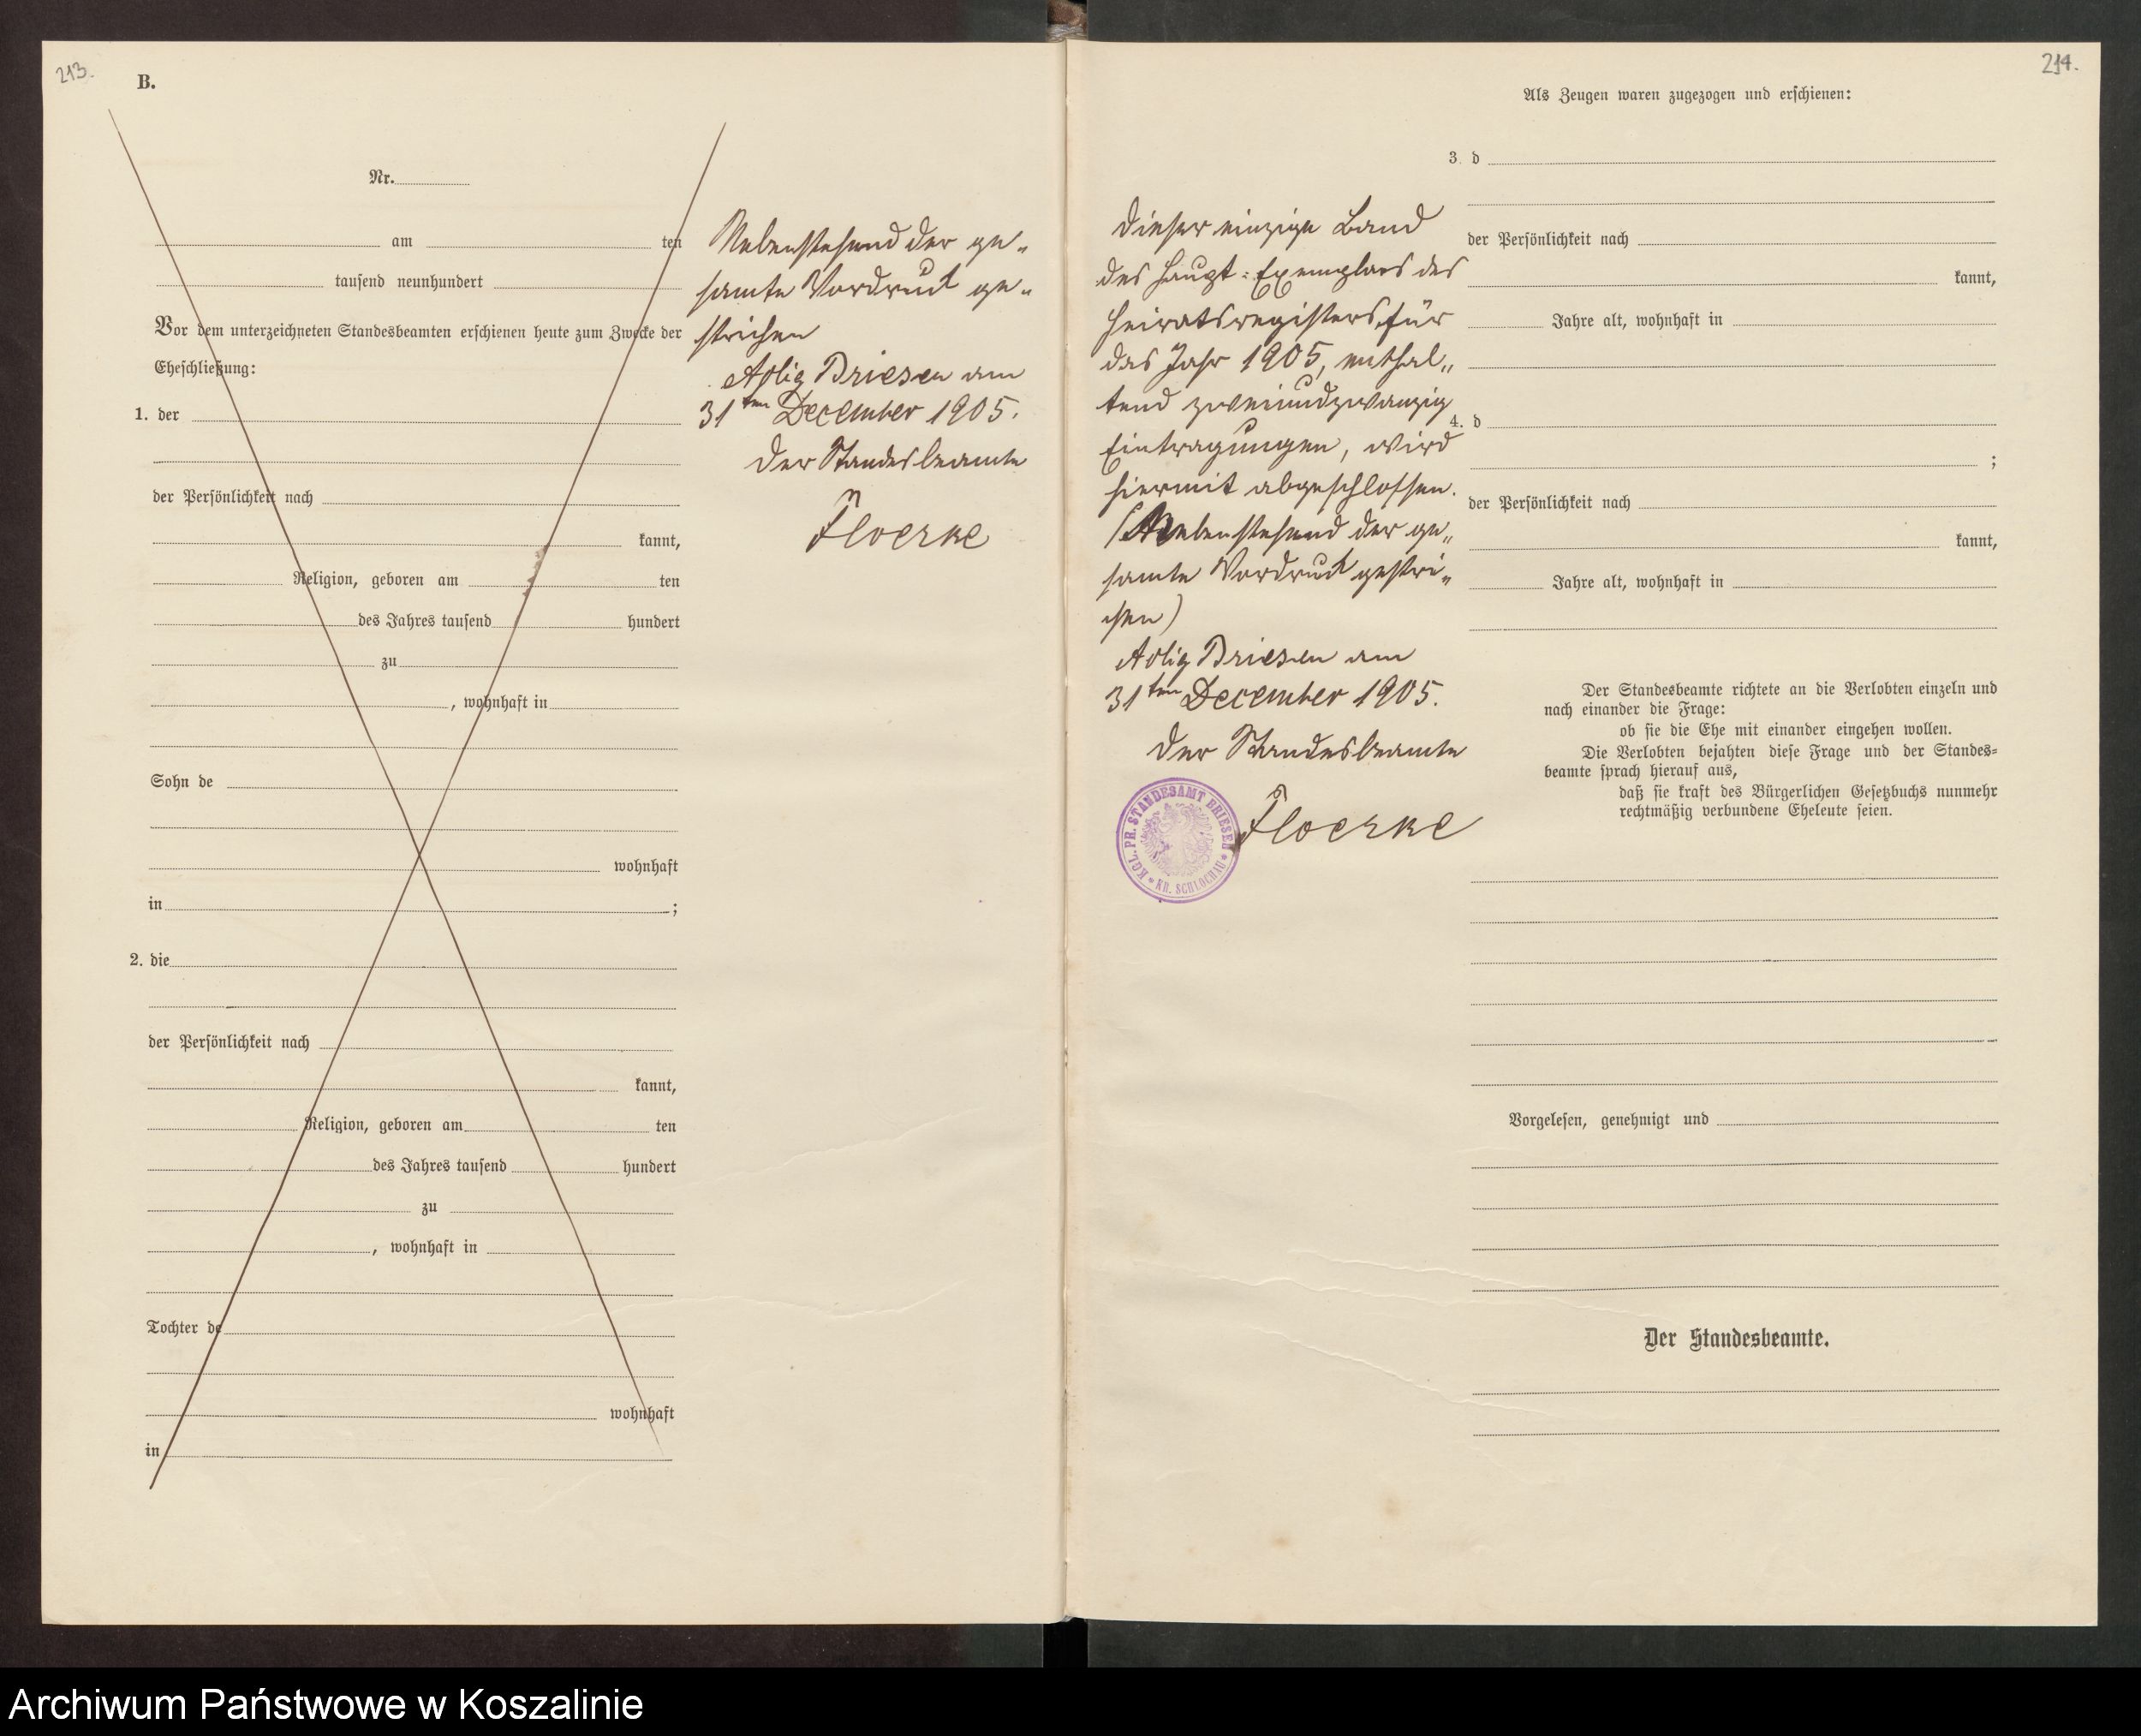 213.
B.
Nr.
am ten
tausend neunhundert
Vor dem unterzeichneten Standesbeamten erschienen heute zum Zwecke der
Eheschließung:
1. der
der Persönlichkeit nach
kannt,
Religion, geboren am ten
des Jahres tausend hundert
zu
, wohnhaft in
Sohn de
wohnhaft
in ;
2. die
der Persönlichkeit nach
kannt,
Religion, geboren am ten
des Jahres tausend hundert
zu
, wohnhaft in
Tochter de
wohnhaft
in
Nebenstehend der ge-
samte Vordruck ge-
strichen
Adlig Briesen am
31ten December 1905.
Der Standesbeamte
Floerke
214.
Dieser einzige Band
des Haupt-Exemplars des
Heiratsregisters für
das Jahr 1905, enthal-
tend zweiundzwanzig
Eintragungen, wird
hiermit abgeschlossen.
(Nebenstehend der ge-
samte Vordruck gestri-
chen)
Adlig Briesen am
31ten December 1905.
Der Standesbeamte
Floerke
KGL. PR. STANDESAMT BRIESEN * KR. SCHLOCHAU *
Als Zeugen waren zugezogen und erschienen:
3. d
der Persönlichkeit nach
kannt,
Jahre alt, wohnhaft in
4. d
;
der Persönlichkeit nach
kannt,
Jahre alt, wohnhaft in
Der Standesbeamte richtete an die Verlobten einzeln und
nach einander die Frage:
ob sie die Ehe mit einander eingehen wollen.
Die Verlobten bejahten diese Frage und der Standes-
beamte sprach hierauf aus,
daß sie kraft des Bürgerlichen Gesetzbuchs nunmehr
rechtmäßig verbundene Eheleute seien.
Vorgelesen, genehmigt und
Der Standesbeamte.
Archiwum Państwowe w Koszalinie